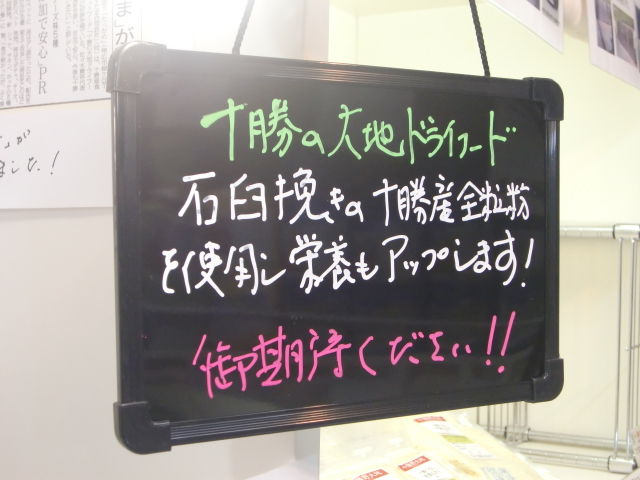 十勝の大地ドライフード
石臼挽きの十勝産全粒粉
を使用し栄養もアップします!
御期待ください!!
加で安心」PR
ました!